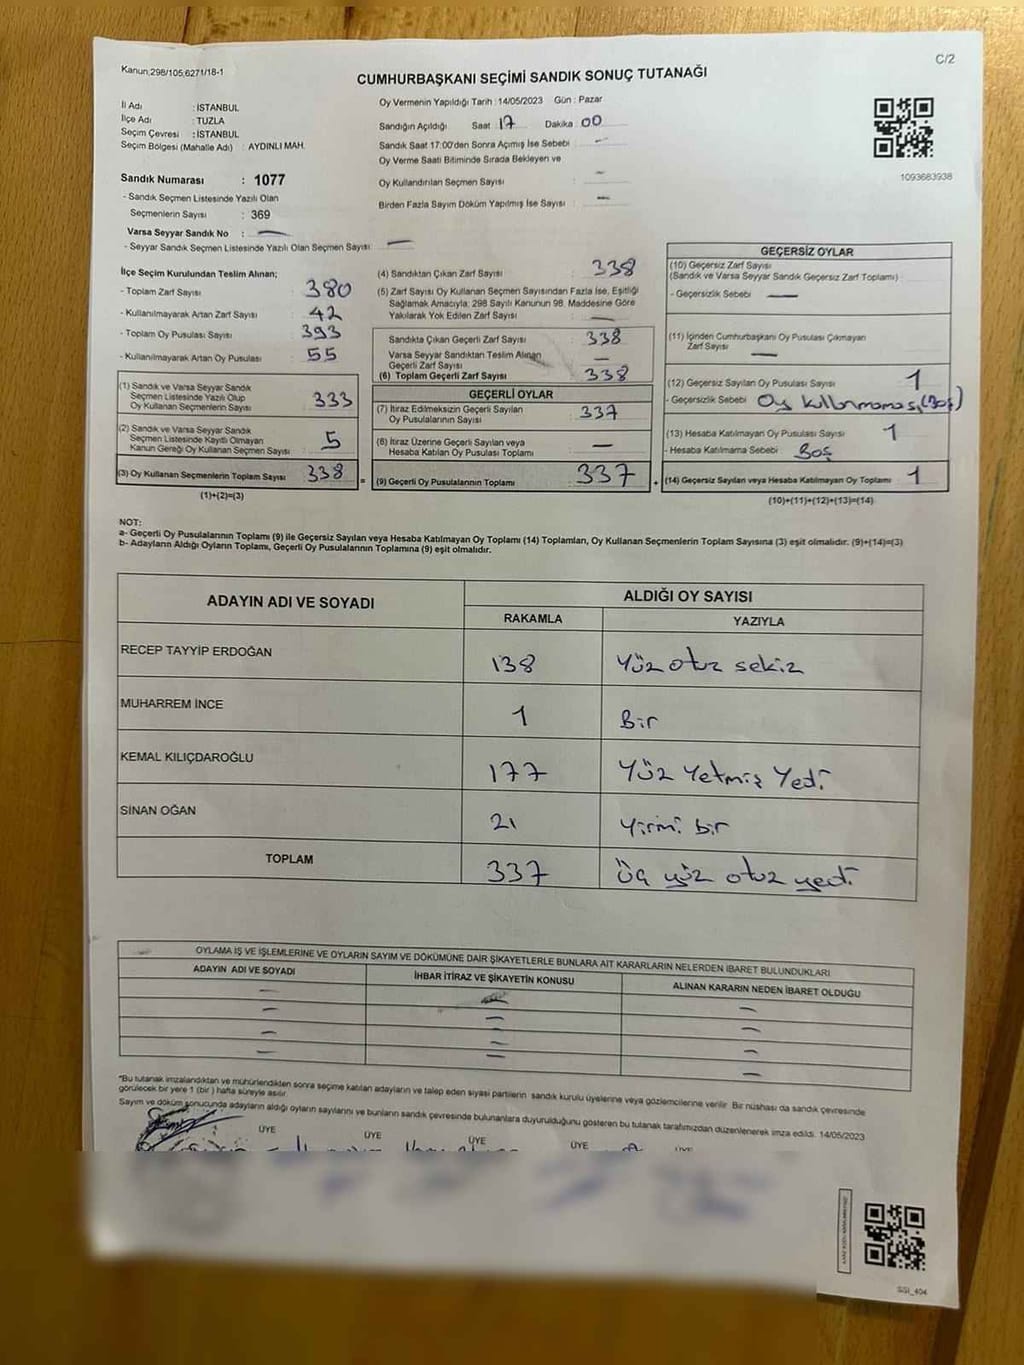 Kanun;298/105,6271/18-1
C/2
CUMHURBAŞKANI SEÇİMİ SANDIK SONUÇ TUTANAĞI
İl Adı : İSTANBUL
İlçe Adı : TUZLA
Seçim Çevresi : İSTANBUL
Seçim Bölgesi (Mahalle Adı) : AYDINLI MAH.
Oy Vermenin Yapıldığı Tarih : 14/05/2023 Gün : Pazar
Sandığın Açıldığı Saat : 17 Dakika : 00
Sandık Saat 17:00'den Sonra Açılmış İse Sebebi : -
Oy Verme Saati Bitiminde Sırada Bekleyen ve
Oy Kullandırılan Seçmen Sayısı : -
Birden Fazla Sayım Döküm Yapılmış İse Sayısı : -
1093683938
Sandık Numarası : 1077
- Sandık Seçmen Listesinde Yazılı Olan
Seçmenlerin Sayısı : 369
Varsa Seyyar Sandık No : -
- Seyyar Sandık Seçmen Listesinde Yazılı Olan Seçmen Sayısı: -
İlçe Seçim Kurulundan Teslim Alınan;
- Toplam Zarf Sayısı : 380
- Kullanılmayarak Artan Zarf Sayısı : 42
- Toplam Oy Pusulası Sayısı : 393
- Kullanılmayarak Artan Oy Pusulası : 55
(1) Sandık ve Varsa Seyyar Sandık
Seçmen Listesinde Yazılı Olup
Oy Kullanan Seçmenlerin Sayısı : 333
(2) Sandık ve Varsa Seyyar Sandık
Seçmen Listesinde Kayıtlı Olmayan
Kanun Gereği Oy Kullanan Seçmen Sayısı : 5
(3) Oy Kullanan Seçmenlerin Toplam Sayısı : 338
(1)+(2)=(3)
(4) Sandıktan Çıkan Zarf Sayısı : 338
(5) Zarf Sayısı Oy Kullanan Seçmen Sayısından Fazla İse, Eşitliği
Sağlamak Amacıyla; 298 Sayılı Kanunun 98. Maddesine Göre
Yakılarak Yok Edilen Zarf Sayısı : -
Sandıkta Çıkan Geçerli Zarf Sayısı : 338
Varsa Seyyar Sandıktan Teslim Alınan
Geçerli Zarf Sayısı : -
(6) Toplam Geçerli Zarf Sayısı : 338
GEÇERLİ OYLAR
(7) İtiraz Edilmeksizin Geçerli Sayılan
Oy Pusulalarının Sayısı : 337
(8) İtiraz Üzerine Geçerli Sayılan veya
Hesaba Katılan Oy Pusulası Toplamı : -
= (9) Geçerli Oy Pusulalarının Toplamı : 337 +
GEÇERSİZ OYLAR
(10) Geçersiz Zarf Sayısı
(Sandık ve Varsa Seyyar Sandık Geçersiz Zarf Toplamı) :
- Geçersizlik Sebebi : -
(11) İçinden Cumhurbaşkanı Oy Pusulası Çıkmayan
Zarf Sayısı : -
(12) Geçersiz Sayılan Oy Pusulası Sayısı : 1
- Geçersizlik Sebebi : Oy kullanmamış (Boş)
(13) Hesaba Katılmayan Oy Pusulası Sayısı : 1
- Hesaba Katılmama Sebebi : Boş
(14) Geçersiz Sayılan veya Hesaba Katılmayan Oy Toplamı : 1
(10)+(11)+(12)+(13)=(14)
NOT:
a- Geçerli Oy Pusulalarının Toplamı (9) ile Geçersiz Sayılan veya Hesaba Katılmayan Oy Toplamı (14) Toplamları, Oy Kullanan Seçmenlerin Toplam Sayısına (3) eşit olmalıdır. (9)+(14)=(3)
b- Adayların Aldığı Oyların Toplamı, Geçerli Oy Pusulalarının Toplamına (9) eşit olmalıdır.
ADAYIN ADI VE SOYADI ALDIĞI OY SAYISI
RAKAMLA YAZIYLA
RECEP TAYYİP ERDOĞAN 138 Yüz otuz sekiz
MUHARREM İNCE 1 Bir
KEMAL KILIÇDAROĞLU 177 Yüz Yetmiş Yedi
SİNAN OĞAN 21 Yirmi bir
TOPLAM 337 Üç yüz otuz yedi
OYLAMA İŞ VE İŞLEMLERİNE VE OYLARIN SAYIM VE DÖKÜMÜNE DAİR ŞİKAYETLERLE BUNLARA AİT KARARLARIN NELERDEN İBARET BULUNDUKLARI
ADAYIN ADI VE SOYADI İHBAR İTİRAZ VE ŞİKAYETİN KONUSU ALINAN KARARIN NEDEN İBARET OLDUĞU
*Bu tutanak imzalandıktan ve mühürlendikten sonra seçime katılan adayların ve talep eden siyasi partilerin sandık kurulu üyelerine veya gözlemcilerine verilir. Bir nüshası da sandık çevresinde
görülecek bir yere 1 (bir) hafta süreyle asılır.
Sayım ve döküm sonucunda adayların aldığı oyların sayılarını ve bunların sandık çevresinde bulunanlara duyurulduğunu gösteren bu tutanak tarafımızdan düzenlenerek imza edildi. 14/05/2023
ÜYE ÜYE ÜYE ÜYE ÜYE
SSI_404